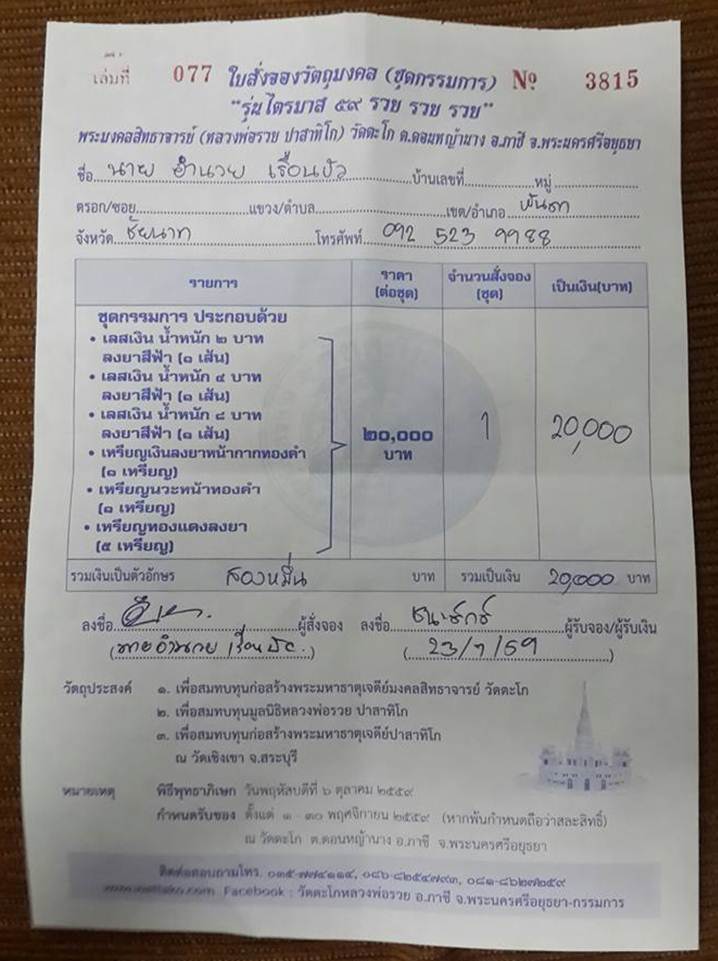 เล่มที่ 077 ใบสั่งจองวัตถุมงคล (ชุดกรรมการ) Nº 3815
"รุ่นไตรมาส ๕๙ รวย รวย รวย"
พระมงคลสิทธาจารย์ (หลวงพ่อรวย ปาสาทิโก) วัดตะโก ต.ดอนหญ้านาง อ.ภาชี จ.พระนครศรีอยุธยา
ชื่อ นาย อำนวย เรือนบัว บ้านเลขที่ หมู่
ตรอก/ซอย แขวง/ตำบล เขต/อำเภอ
จังหวัด ชัยนาท โทรศัพท์ 092 523 9988
รายการ ราคา (ต่อชุด) จำนวนสั่งจอง (ชุด) เป็นเงิน(บาท)
ชุดกรรมการ ประกอบด้วย
• เลสเงิน น้ำหนัก ๒ บาท
ลงยาสีฟ้า (๑ เส้น)
• เลสเงิน น้ำหนัก ๔ บาท
ลงยาสีฟ้า (๑ เส้น)
• เลสเงิน น้ำหนัก ๘ บาท
ลงยาสีฟ้า (๑ เส้น)
๒๐,๐๐๐ บาท 1 20,000
• เหรียญเงินลงยาหน้ากากทองคำ
(๑ เหรียญ)
• เหรียญนวะหน้าทองคำ
(๑ เหรียญ)
• เหรียญทองแดงลงยา
(๕ เหรียญ)
รวมเงินเป็นตัวอักษร สองหมื่น บาท รวมเป็นเงิน 20,000 บาท
ลงชื่อ ผู้สั่งจอง ลงชื่อ ผู้รับจอง/ผู้รับเงิน
(นายอำนวย เรือนบัว) (23/7/59)
วัตถุประสงค์ ๑. เพื่อสมทบทุนก่อสร้างพระมหาธาตุเจดีย์มงคลสิทธาจารย์ วัดตะโก
๒. เพื่อสมทบทุนมูลนิธิหลวงพ่อรวย ปาสาทิโก
๓. เพื่อสมทบทุนก่อสร้างพระมหาธาตุเจดีย์ปาสาทิโก
ณ วัดเชิงเขา จ.สระบุรี
หมายเหตุ พิธีพุทธาภิเษก วันพฤหัสบดีที่ ๖ ตุลาคม ๒๕๕๙
กำหนดรับของ ตั้งแต่ ๑ - ๓๐ พฤศจิกายน ๒๕๕๙ (หากพ้นกำหนดถือว่าสละสิทธิ์)
ณ วัดตะโก ต.ดอนหญ้านาง อ.ภาชี จ.พระนครศรีอยุธยา
ติดต่อสอบถามโทร. ๐๓๕-๗๗๔๑๑๔, ๐๘๖-๘๒๕๔๗๙๓, ๐๘๑-๘๖๒๗๒๕๙
Facebook : วัดตะโกหลวงพ่อรวย อ.ภาชี จ.พระนครศรีอยุธยา-กรรมการ